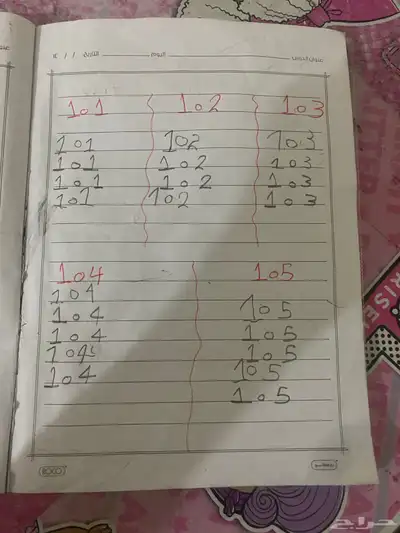 101 102 103
101 102 103
101 102 103
101 102 103
101 102 103
104 105
104
104 105
104 105
104 105
104 105
105
ROCO
حراج